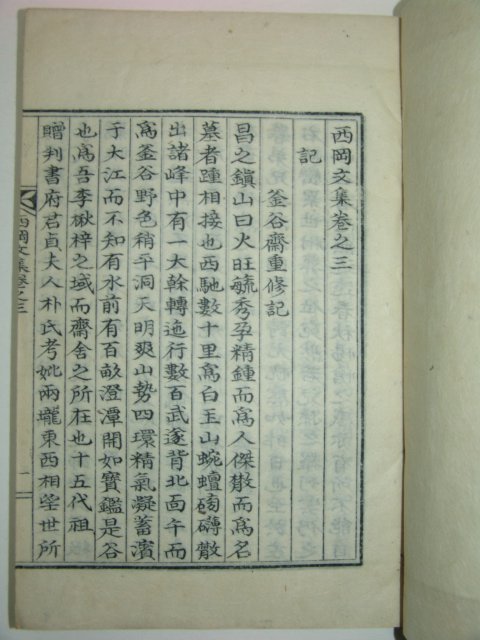 西岡文集卷之三
記
釜谷齋重修記
昌之鎭山曰火旺毓秀孕精鍾而爲人傑散而爲名
墓者踵相接也西馳數十里爲白玉山蜿蟺磅礴散
出諸峰中有一大幹轉迤行數百武遂背北面午而
爲釜谷野色稍平洞天明爽山勢四環精氣凝蓄濱
于大江而不知有水前有百畝澄潭開如寶鑑是谷
也爲吾李楸梓之域而齋舍之所在也十五代祖
贈判書府君貞夫人朴氏考妣兩壠東西相望世所
西岡文集卷之三